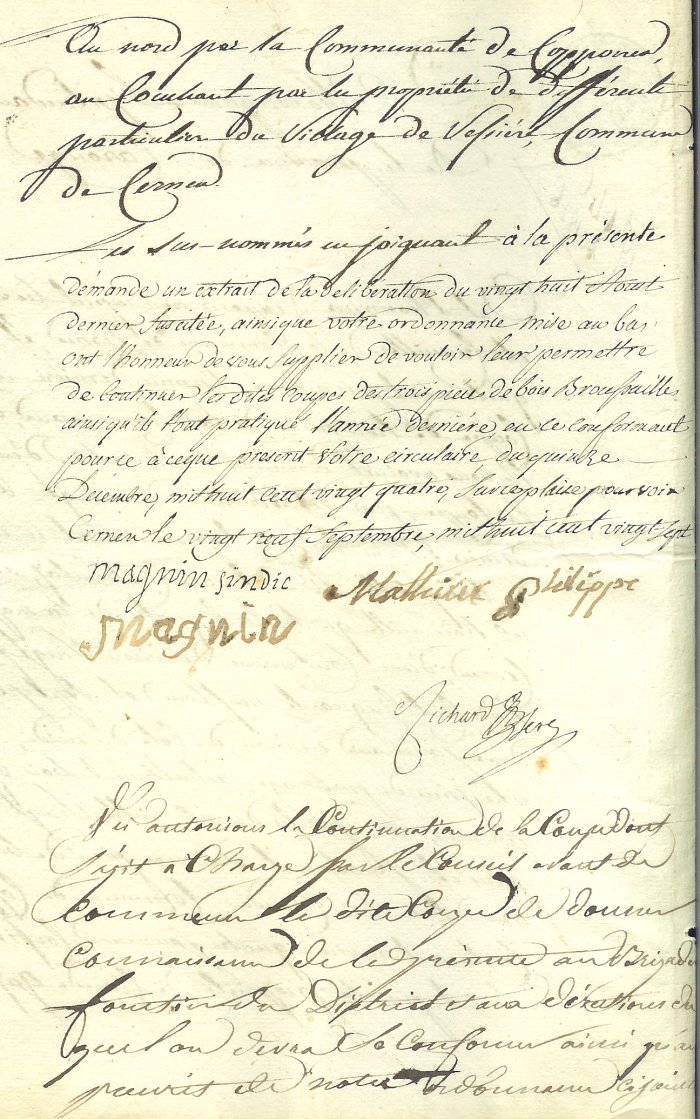 Au nord par la Communauté de Copponex,
au Couchant par la propriété de différents
particulier du Village de Vesiére, Commune
de Cernex.
Les sus-nommés en joignant à la présente
démande un extrait de la déliberation du vingt huit Aoust
dernier suscitée, ainsique votre ordonnance mise au bas
ont l'honneur de vous supplier de vouloir leur permettre
de Continuer lesdites Coupes des trois piéces de bois Broussailles
ainsiqu'ils l'ont pratiqué l'année derniére, en ce conformant
pour ce àceque prescrit Votre circulaire, du quinze
Décembre, mil huit cent vingt quatre, Surce plaise pourvoir
Cernex le vingt neuf Septembre, mil huit cent vingt Sept
magnin sindic
Mathieu Philippe
magnin
Richard
Vu autorisons la Continuation de la Coupe dont
s'agit à Charge par le Conseil avant de
commencer la dite Coupe de donner
Connaissance de la présente au Brigadier
forestier du District et aux
quel on devra se Conformer ainsi qu'au
prescrit de notre ordonnance